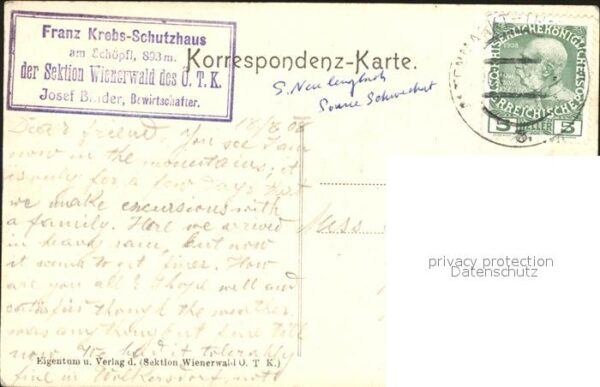 Franz Krebs-Schutzhaus
am Schöpfl, 893 m.
der Sektion Wienerwald des Ö. T. K.
Josef Binder, Bewirtschafter.
Korrespondenz-Karte.
S. Neulengbach
1908
5 HELLER 5
18/8 08
Dear friend. You see I am
now in the mountains; it
is only for a few days that
we make excursions with
a family. Here we arrived
in heavy rain, but now
it seems to get finer. How
are you all? I hope well and
though the weather
was anything but fine till
now. We had it tolerably
fine in Wolkersdorf, with
Miss
privacy protection
Datenschutz
Eigentum u. Verlag d. (Sektion Wienerwald Ö. T. K.)